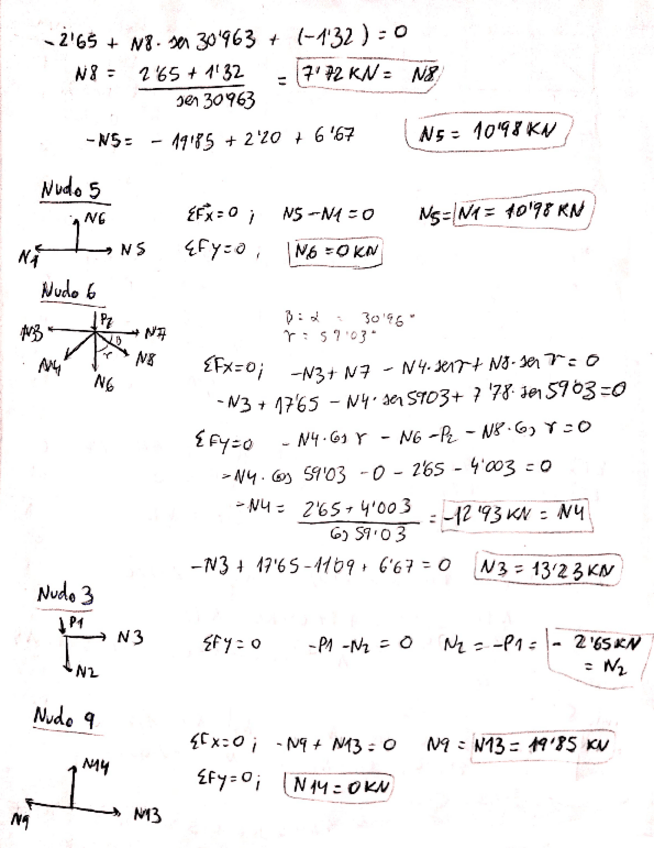 -2'65 + N8 · sen 30'963 + (-1'32) = 0
N8 = 2'65 + 1'32 / sen 30'963 = 7'72 KN = N8
-N5 = - 19'85 + 2'20 + 6'67 N5 = 10'98 KN
Nudo 5
N6
N1 N5
ΣFx = 0 ; N5 - N1 = 0 N5 = N1 = 10'98 KN
ΣFy = 0 , N6 = 0 KN
Nudo 6
P2
N3 N7
β
γ
N4 N8
N6
β = α = 30'96°
γ = 59'03°
ΣFx = 0 ; -N3 + N7 - N4 · sen γ + N8 · sen γ = 0
-N3 + 17'65 - N4 · sen 59'03 + 7'78 · sen 59'03 = 0
ΣFy = 0 - N4 · cos γ - N6 - P2 - N8 · cos γ = 0
-N4 · cos 59'03 - 0 - 2'65 - 4'003 = 0
-N4 = 2'65 + 4'003 / cos 59'03 = -12'93 KN = N4
-N3 + 17'65 - 11'09 + 6'67 = 0 N3 = 13'23 KN
Nudo 3
P1
N3
N2
ΣFy = 0 -P1 - N2 = 0 N2 = -P1 = - 2'65 KN
= N2
Nudo 9
ΣFx = 0 ; -N9 + N13 = 0 N9 = N13 = 19'85 KN
ΣFy = 0 ; N14 = 0 KN
N14
N9 N13